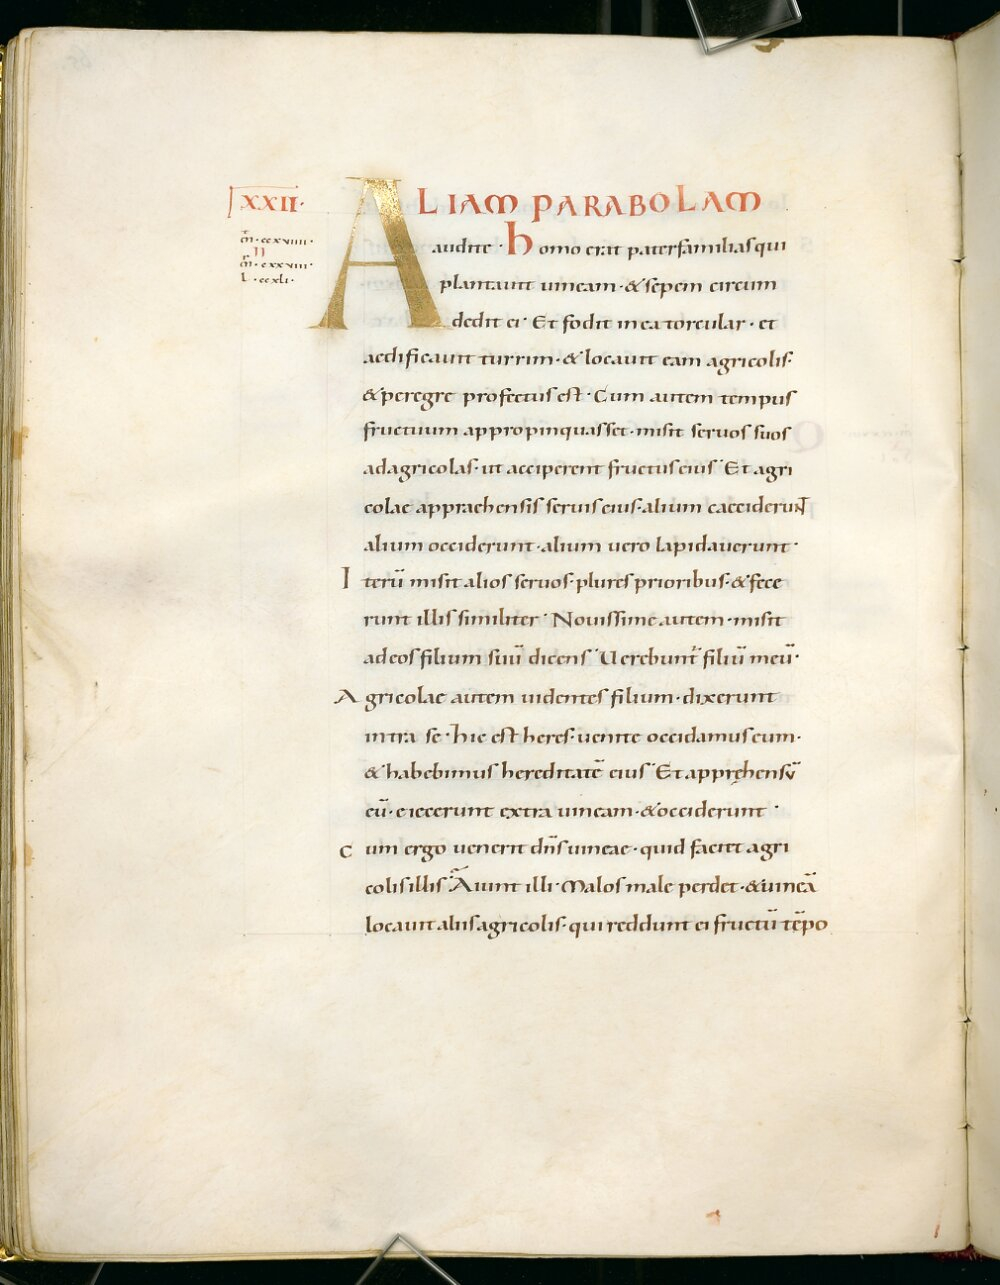 XXII·
m̄·ccxviiii·
II
m̄r·cxxviii·
L·ccxli·
ALIAM PARABOLAM
audite· homo erat paterfamilias qui
plantauit uineam·& sepem circum
dedit ei· Et fodit in ea torcular· et
aedificauit turrim·& locauit eam agricolis·
& peregre profectus est· Cum autem tempus
fructuum appropinquasset· misit seruos suos
ad agricolas· ut acciperent fructus eius· Et agri
colae appraehensis seruis eius· alium caeciderunt
alium occiderunt· alium uero lapidauerunt·
Iterū misit alios seruos· plures prioribus·& fece
runt illis similiter· Nouissime autem· misit
ad eos filium suū dicens· Uerebunt᷑ filiū meū·
Agricolae autem uidentes filium· dixerunt
intra se· hic est heres· uenite occidamus eum·
& habebimus hereditatē eius· Et apprehensū
eū· eiecerunt extra uineam·& occiderunt·
Cum ergo uenerit dn̄s uineae· quid faciet agri
colis illis· Aiunt illi· Malos male perdet·& uineā
locauit aliis agricolis· qui reddunt ei fructū tēpo